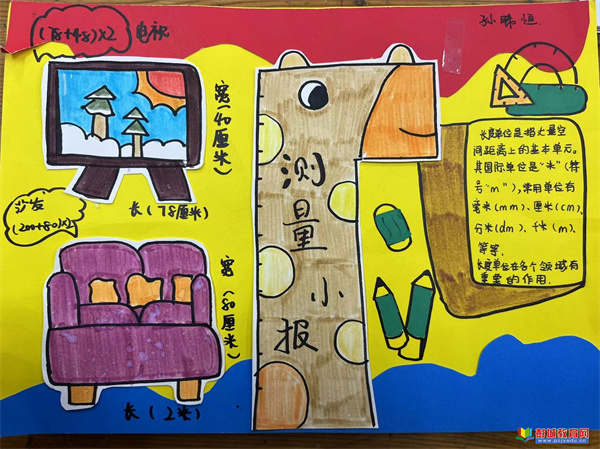 (78+48)×2 电视
孙晞恒
宽(40厘米)
长(78厘米)
沙发
(200+80)×2
宽(80厘米)
长(2米)
测量小报
长度单位是指丈量空
间距离上的基本单元。
其国际单位是"米"(符
号"m"),常用单位有
毫米(mm)、厘米(cm)、
分米(dm)、千米(m)、
等等.
长度单位在各个领域有
重要的作用.
彭城教育网